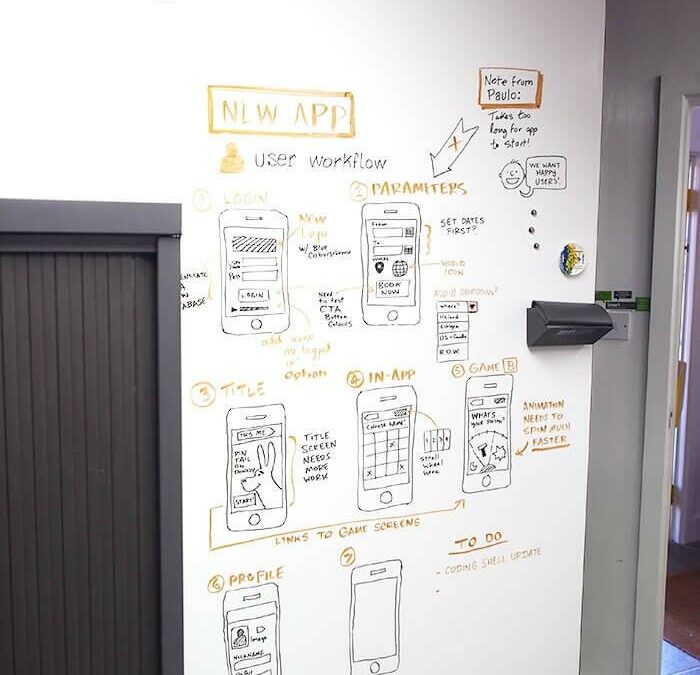 NEW APP
user workflow
Note from
Paulo:
Takes too
long for app
to start!
WE WANT
HAPPY
USERS!
① LOGIN
NEW
Logo
w/ Blue
Colourscheme
LOGIN
BASE
Need
to test
CTA
Button
Colours
add keep
me logged
in
option
② PARAMETERS
From
To
WHERE
BOOK
NOW
SET DATES
FIRST?
WORLD
ICON
ADD A DROPDOWN?
Where?
Ireland
Europe
US + Canada
R.O.W.
③ TITLE
TRY ME
PIN
TAIL
ON
DONKEY
START
TITLE
SCREEN
NEEDS
MORE
WORK
④ IN-APP
CHOOSE NAME!
X
X
X
1 2 3 4
Scroll
wheel
here
⑤ GAME B
WHAT'S
ANIMATION
NEEDS TO
SPIN MUCH
FASTER
LINKS TO GAME SCREENS
TO DO
- CODING SHELL UPDATE
-
⑥ PROFILE
Image
NICKNAME
⑦